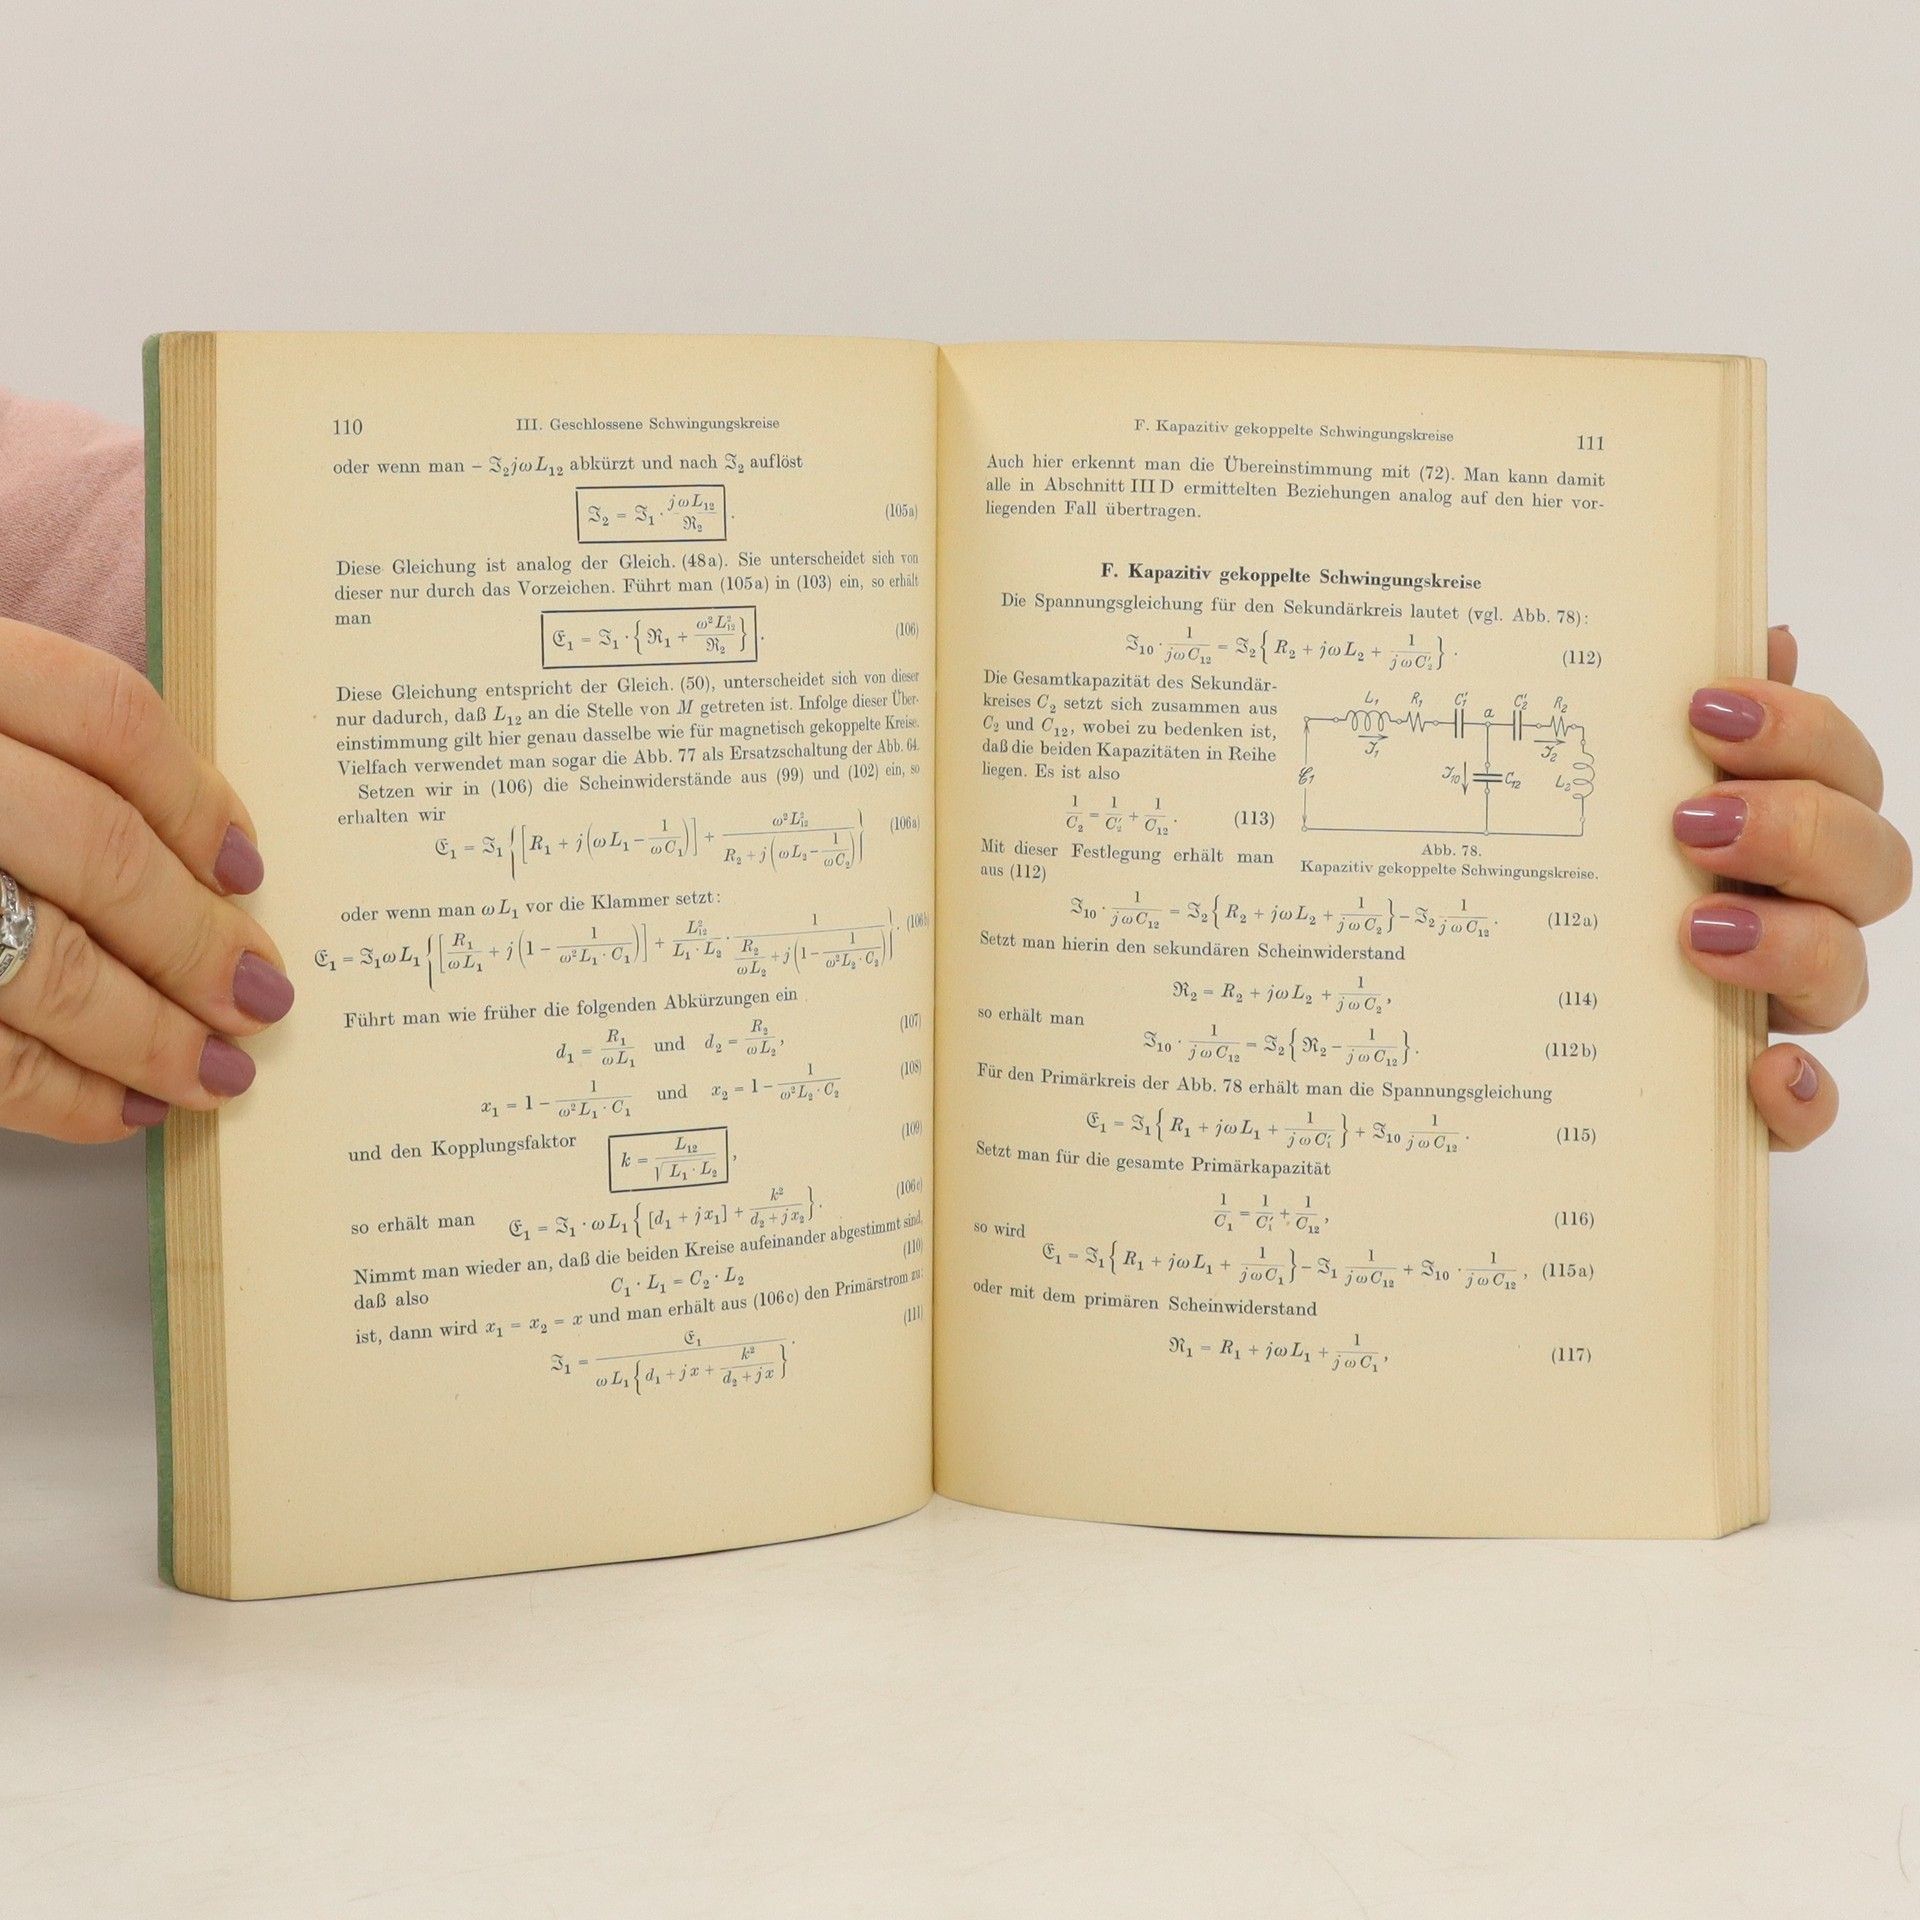 110 III. Geschlossene Schwingungskreise
oder wenn man − ℑ₂jωL₁₂ abkürzt und nach ℑ₂ auflöst
ℑ₂ = ℑ₁ · jωL₁₂/ℜ₂ . (105a)
Diese Gleichung ist analog der Gleich. (48a). Sie unterscheidet sich von
dieser nur durch das Vorzeichen. Führt man (105a) in (103) ein, so erhält
man
𝔈₁ = ℑ₁ · {ℜ₁ + ω²L₁₂²/ℜ₂} . (106)
Diese Gleichung entspricht der Gleich. (50), unterscheidet sich von dieser
nur dadurch, daß L₁₂ an die Stelle von M getreten ist. Infolge dieser Über-
einstimmung gilt hier genau dasselbe wie für magnetisch gekoppelte Kreise.
Vielfach verwendet man sogar die Abb. 77 als Ersatzschaltung der Abb. 64.
Setzen wir in (106) die Scheinwiderstände aus (99) und (102) ein, so
erhalten wir
𝔈₁ = ℑ₁ {[R₁ + j(ωL₁ − 1/(ωC₁))] + ω²L₁₂²/(R₂ + j(ωL₂ − 1/(ωC₂)))} (106a)
oder wenn man ωL₁ vor die Klammer setzt:
𝔈₁ = ℑ₁ωL₁ {[R₁/(ωL₁) + j(1 − 1/(ω²L₁ · C₁))] + L₁₂²/(L₁ · L₂) · 1/(R₂/(ωL₂) + j(1 − 1/(ω²L₂ · C₂)))} . (106b)
Führt man wie früher die folgenden Abkürzungen ein
d₁ = R₁/(ωL₁) und d₂ = R₂/(ωL₂), (107)
x₁ = 1 − 1/(ω²L₁ · C₁) und x₂ = 1 − 1/(ω²L₂ · C₂) (108)
und den Kopplungsfaktor k = L₁₂/√(L₁ · L₂) , (109)
so erhält man 𝔈₁ = ℑ₁ · ωL₁ {[d₁ + jx₁] + k²/(d₂ + jx₂)} . (106c)
Nimmt man wieder an, daß die beiden Kreise aufeinander abgestimmt sind,
daß also C₁ · L₁ = C₂ · L₂ (110)
ist, dann wird x₁ = x₂ = x und man erhält aus (106c) den Primärstrom zu:
ℑ₁ = 𝔈₁/(ωL₁ {d₁ + jx + k²/(d₂ + jx)}) . (111)
F. Kapazitiv gekoppelte Schwingungskreise 111
Auch hier erkennt man die Übereinstimmung mit (72). Man kann damit
alle in Abschnitt III D ermittelten Beziehungen analog auf den hier vor-
liegenden Fall übertragen.
F. Kapazitiv gekoppelte Schwingungskreise
Die Spannungsgleichung für den Sekundärkreis lautet (vgl. Abb. 78):
ℑ₁₀ · 1/(jωC₁₂) = ℑ₂ {R₂ + jωL₂ + 1/(jωC₂′)} . (112)
Die Gesamtkapazität des Sekundär-
kreises C₂ setzt sich zusammen aus
C₂ und C₁₂, wobei zu bedenken ist,
daß die beiden Kapazitäten in Reihe
liegen. Es ist also
1/C₂ = 1/C₂′ + 1/C₁₂ . (113)
Mit dieser Festlegung erhält man
aus (112)
L₁ R₁ C₁′ a C₂′ R₂
ℑ₁ ℑ₂
𝔈₁ ℑ₁₀ C₁₂ L₂
Abb. 78.
Kapazitiv gekoppelte Schwingungskreise.
ℑ₁₀ · 1/(jωC₁₂) = ℑ₂ {R₂ + jωL₂ + 1/(jωC₂)} − ℑ₂ 1/(jωC₁₂) . (112a)
Setzt man hierin den sekundären Scheinwiderstand
ℜ₂ = R₂ + jωL₂ + 1/(jωC₂) , (114)
so erhält man
ℑ₁₀ · 1/(jωC₁₂) = ℑ₂ {ℜ₂ − 1/(jωC₁₂)} . (112b)
Für den Primärkreis der Abb. 78 erhält man die Spannungsgleichung
𝔈₁ = ℑ₁ {R₁ + jωL₁ + 1/(jωC₁′)} + ℑ₁₀ 1/(jωC₁₂) . (115)
Setzt man für die gesamte Primärkapazität
1/C₁ = 1/C₁′ + 1/C₁₂ , (116)
so wird
𝔈₁ = ℑ₁ {R₁ + jωL₁ + 1/(jωC₁)} − ℑ₁ 1/(jωC₁₂) + ℑ₁₀ · 1/(jωC₁₂) , (115a)
oder mit dem primären Scheinwiderstand
ℜ₁ = R₁ + jωL₁ + 1/(jωC₁) , (117)